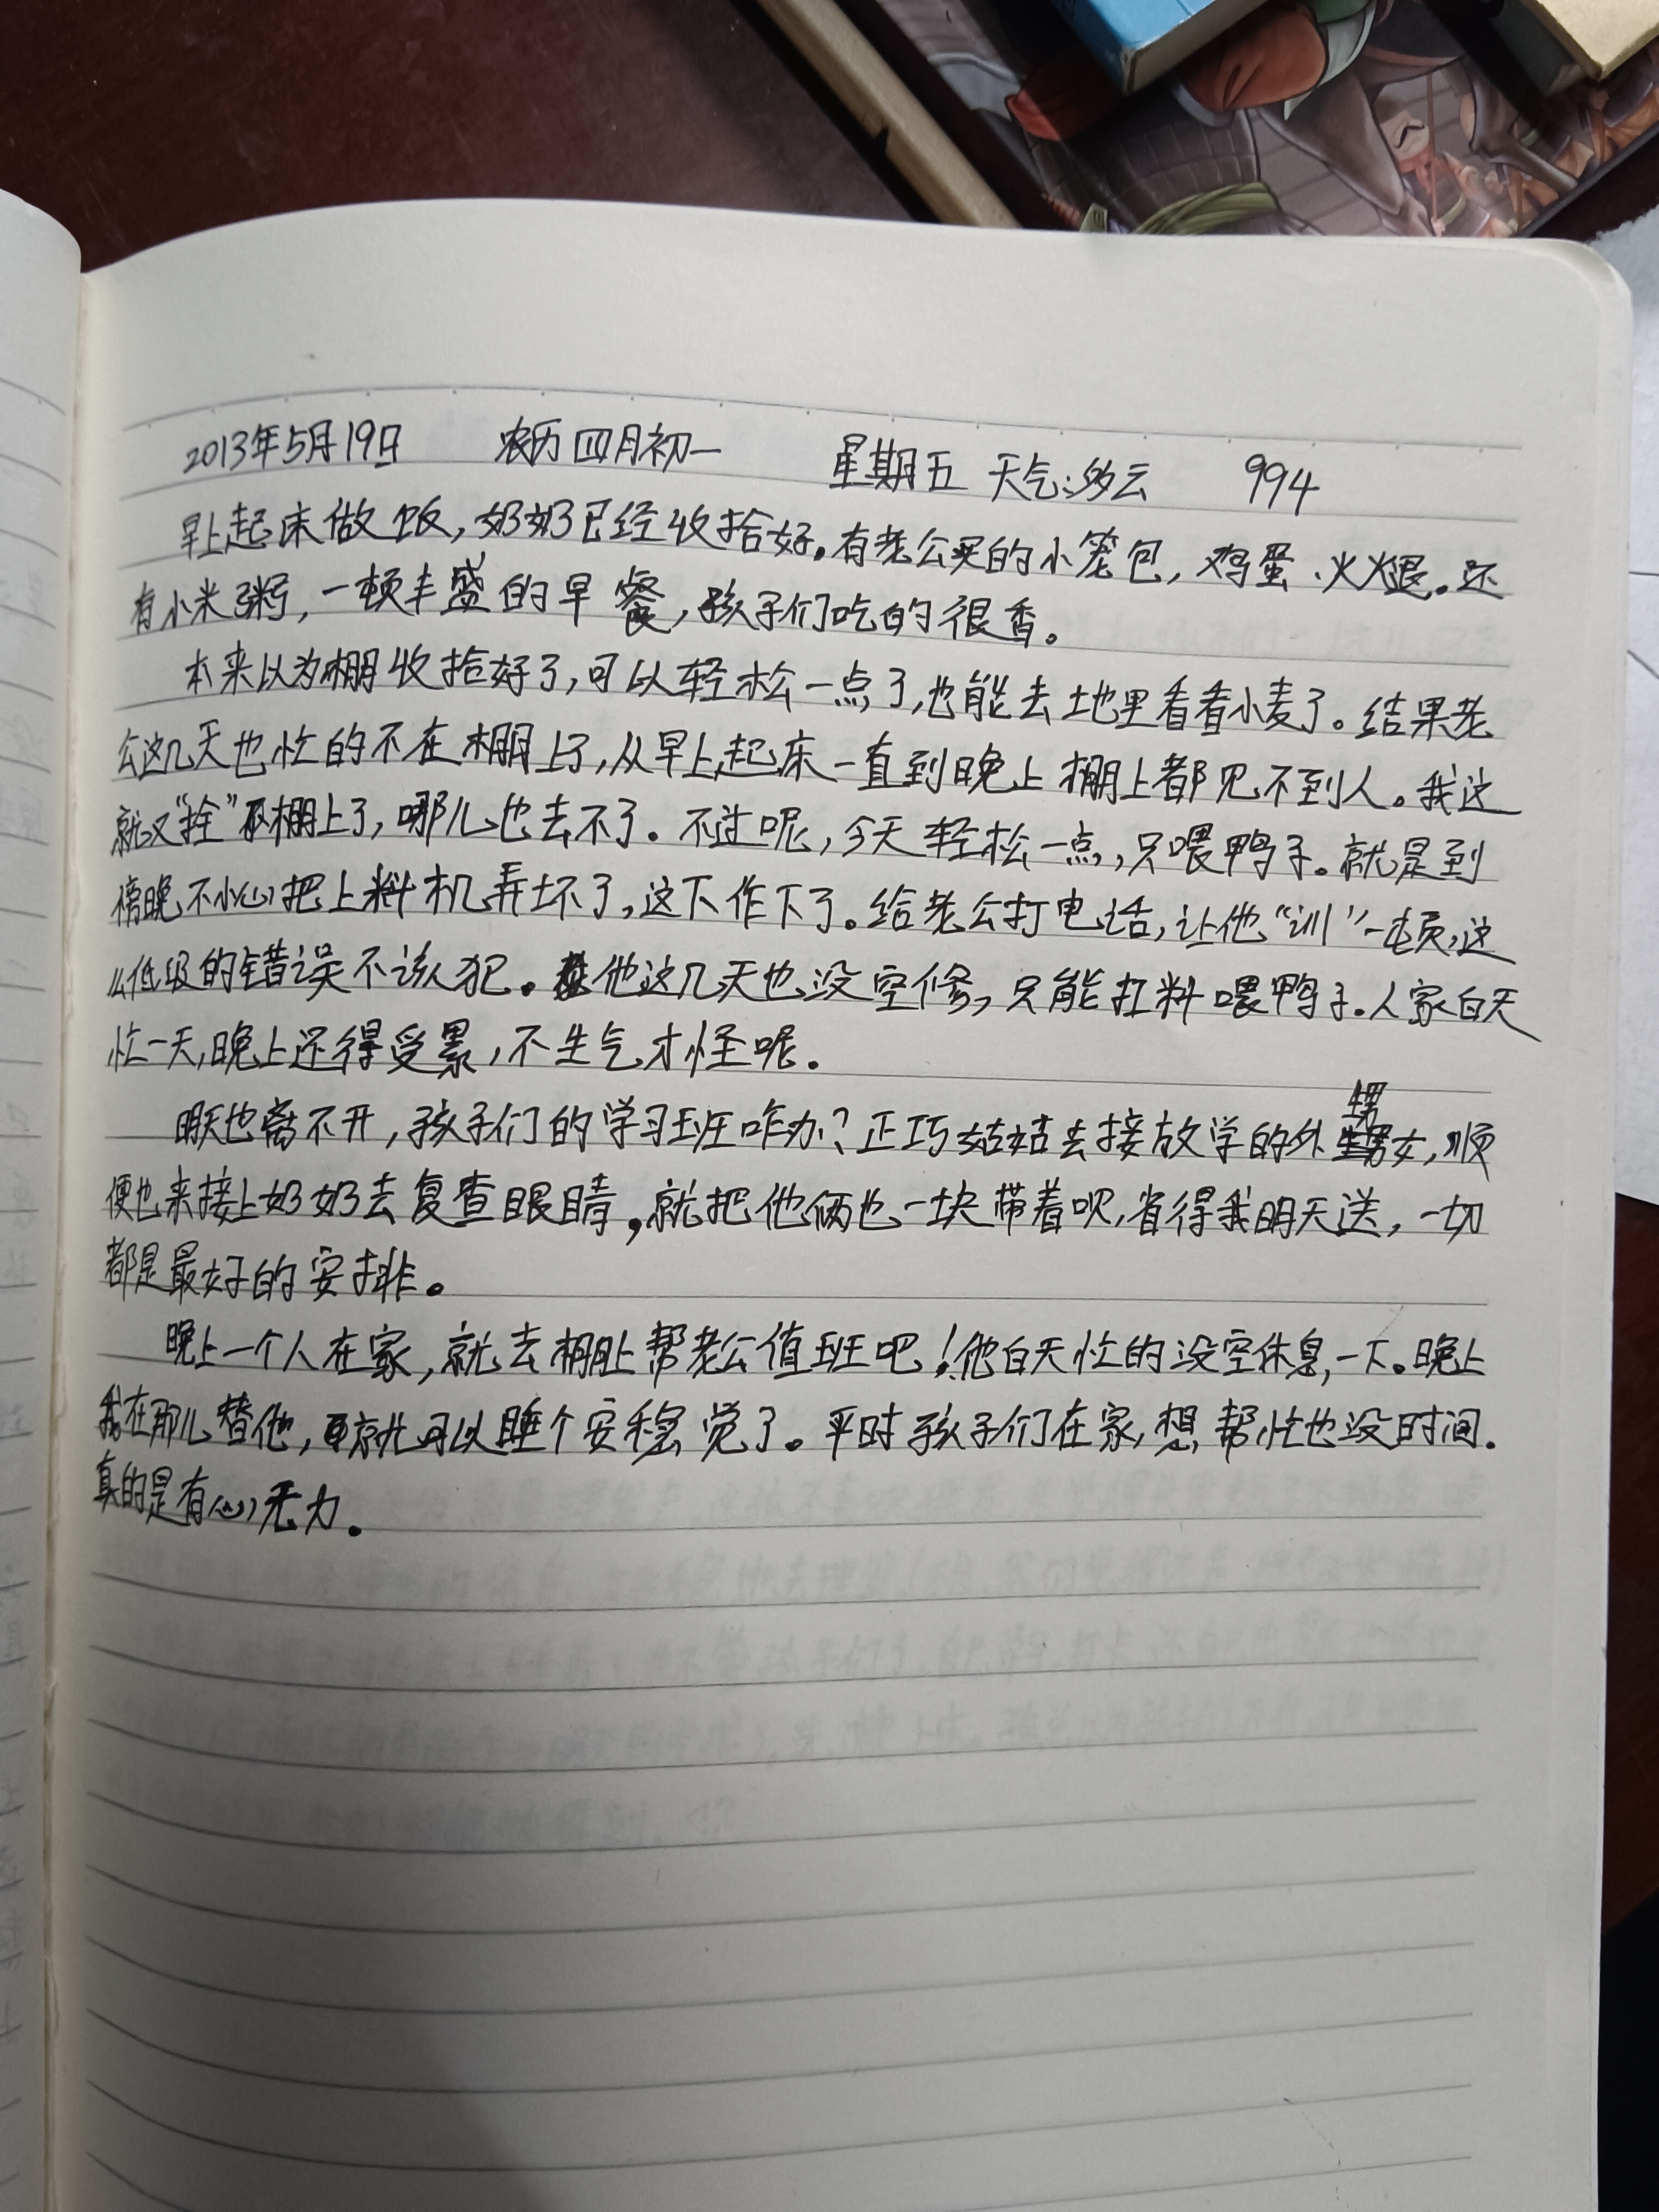 2013年5月19日 农历四月初一 星期五 天气:多云 994
早上起床做饭,奶奶已经收拾好。有老公买的小笼包,鸡蛋、火腿。还
有小米粥,一顿丰盛的早餐,孩子们吃的很香。
本来以为棚收拾好了,可以轻松一点了,也能去地里看看小麦了。结果老
公这几天也忙的不在棚上了,从早上起床一直到晚上棚上都见不到人。我这
就又“拴”在棚上了,哪儿也去不了。不过呢,今天轻松一点,只喂鸭子。就是到
傍晚不小心把上料机弄坏了,这下作下了。给老公打电话,让他“训”一顿,这
么低级的错误不该犯。他这几天也没空修,只能扛料喂鸭子.人家白天
忙一天,晚上还得受累,不生气才怪呢.
明天也离不开,孩子们的学习班咋办?正巧姑姑去接放学的外甥女,顺
便也来接上奶奶去复查眼睛,就把他俩也一块带着呗,省得我明天送,一切
都是最好的安排。
晚上一个人在家,就去棚上帮老公值班吧!他白天忙的没空休息一下。晚上
我在那儿替他,就可以睡个安稳觉了。平时孩子们在家,想帮忙也没时间.
真的是有心无力.